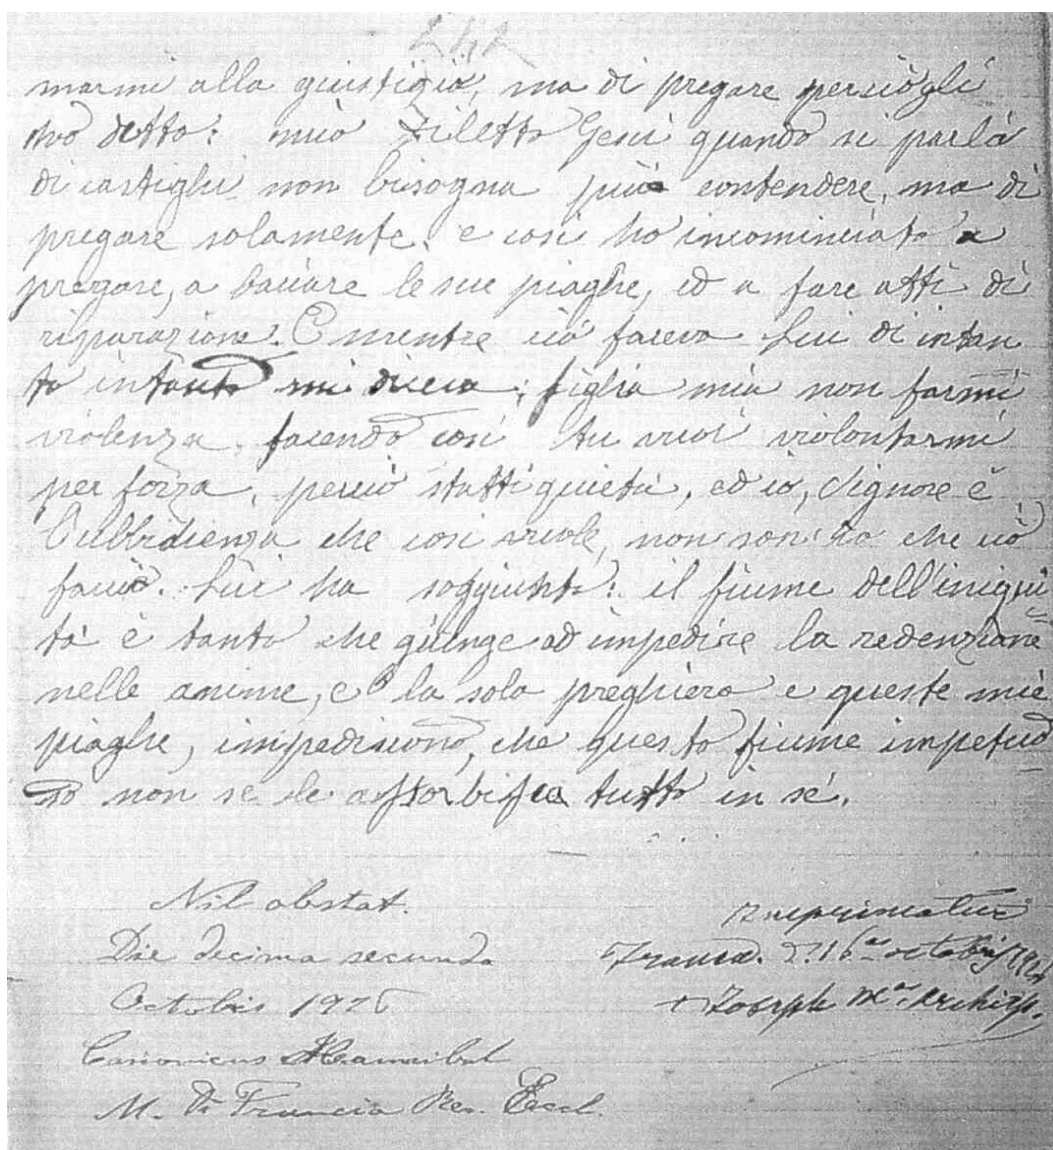 242
marmi alla giustizia, ma di pregare perciò gli
ho detto: mio diletto Gesù quando si parla
di castighi non bisogna più contendere, ma di
pregare solamente. e così ho incominciato a
pregare, a baciare le sue piaghe, ed a fare atti di
riparazione. E mentre ciò faceva Lui di intan
to intanto mi diceva: figlia mia non farmi
violenza, facendo così tu vuoi violontarmi
per forza, perciò statti quieta, ed io, Signore è
l'ubbidienza che così vuole, non son'io che ciò
facio. Lui ha soggiunto: il fiume dell'iniqui
tà è tanto che giunge ad impedire la redenzione
nelle anime, e la sola preghiera e queste mie
piaghe, impediscono, che questo fiume impetuo
so non se le assorbisca tutto in sé.
Nil obstat.
Die decima secunda
Octobris 1926
Canonicus Hannibal
M. Di Francia Rev. Eccl.
Imprimatur
Trani. d. 16 octobris 1926
+ Joseph M. Archiep.